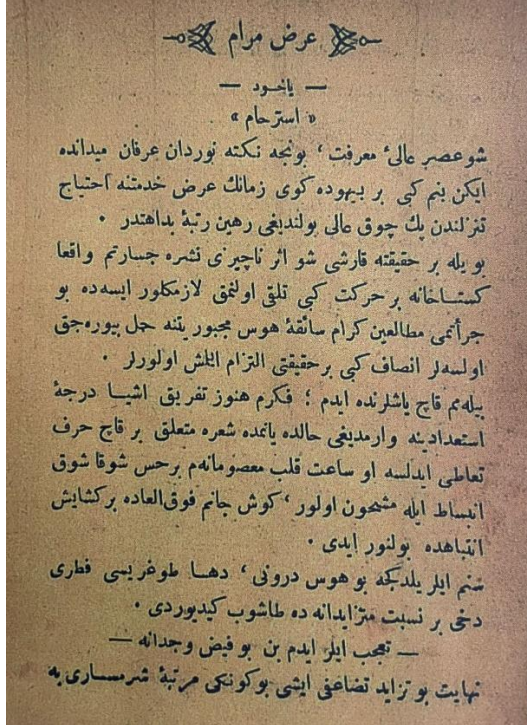 عرض مرام
— ياخود —
« استرحام »
شو عصر عالئ معرفت ، بونجه نكته نوردان عرفان ميدانده
ايكن بنم كبى بر بيهوده كوى زمانك عرض خدمتنه احتياج
تنزلندن پك چوق عالى بولنديغى رهين رتبهٔ بداهتدر .
بويله بر حقيقته قارشى شو اثر ناچيزى نشره جسارتم واقعا
كستاخانه بر حركت كبى تلقى اولنمق لازمكلور ايسه ده بو
جرأتمى مطالعين كرام سائقهٔ هوس مجبوريتنه حمل بيوره جق
اولسه لر انصاف كبى بر حقيقتى التزام ايلمش اولورلر .
بيله م قاچ ياشلرنده ايدم ؛ فكرم هنوز تفريق اشيا درجهٔ
استعدادينه وارمديغى حالده يانمده شعره متعلق بر قاچ حرف
تعاطى ايدلسه او ساعت قلب معصومانه م بر حس شوقا شوق
انبساط ايله مشحون اولور ، كوش جانم فوق العاده بر كشايش
انتباهده بولنور ايدى .
سنم ايلريلدكجه بو هوس درونى ، دها طوغريسى فطرى
دخى بر نسبت متزايدانه ده طاشوب كيديوردى .
— تعجب ايلر ايدم بن بو فيض وجدانه —
نهايت بو تزايد تضاعفى ايشى بوكونكى مرتبهٔ شرمسارى يه